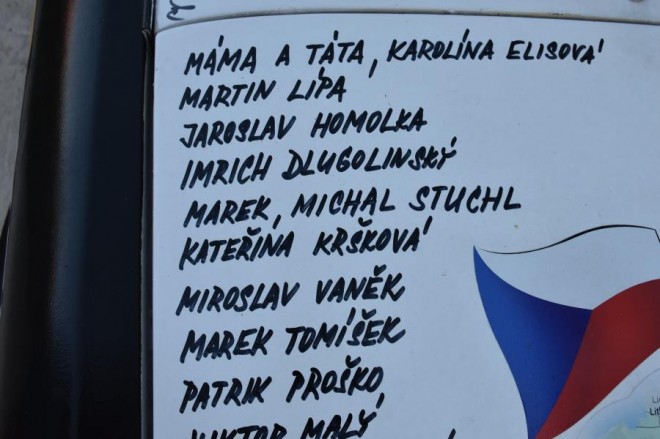 MÁMA A TÁTA, KAROLÍNA ELISOVÁ
MARTIN LÍPA
JAROSLAV HOMOLKA
IMRICH DLUGOLINSKÝ
MAREK, MICHAL STUCHL
KATEŘINA KRŠKOVÁ
MIROSLAV VANĚK
MAREK TOMÍŠEK
PATRIK PROŠKO,
VIKTOR MALÝ